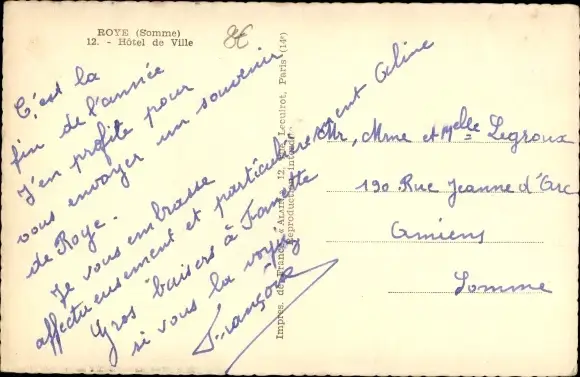 ROYE (Somme)
12. - Hôtel de Ville
8€
C'est la
fin de l'année
J'en profite pour
vous envoyer un souvenir
de Roye.
Je vous embrasse
affectueusement et particulièrement Aline
Gros baisers à Fanette
si vous la voyez
Françoise
Impres. de France, « ALAIN », 12, Rue Lecuirot, Paris (14e)
Reproduction Interdite
Mr, Mme et Melle Legroux
190 Rue Jeanne d'Arc
Amiens
Somme